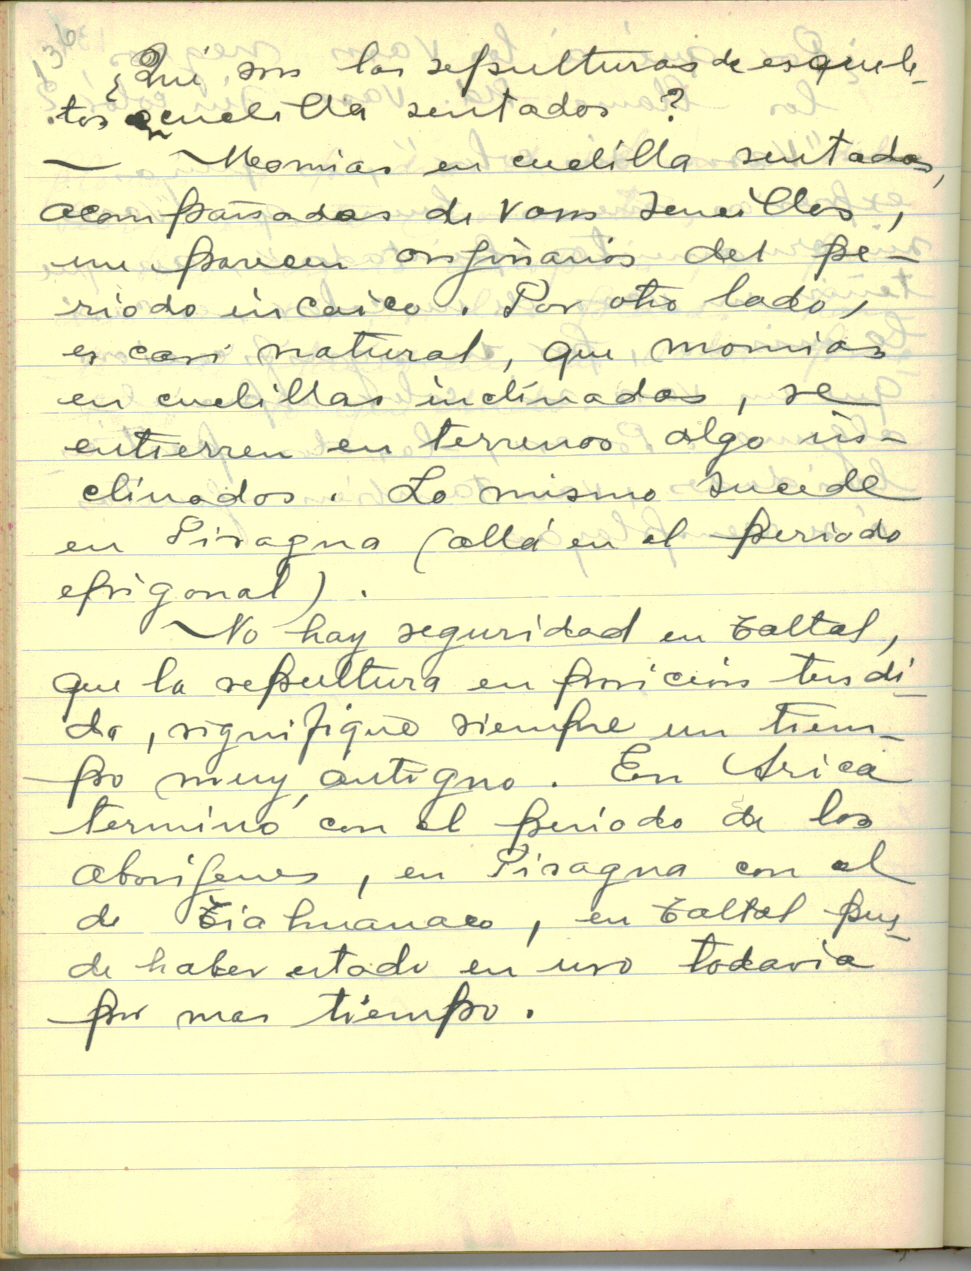 136
¿Qué son las sepulturas de esquele-
tos en cuclilla sentados?
— Momias en cuclilla sentadas,
acompañadas de vasos sencillos,
me parecen originarios del pe-
riodo incaico. Por otro lado,
es casi natural, que momias
en cuclillas inclinadas, se
entierren en terrenos algo in-
clinados. Lo mismo sucede
en Pisagua (allá en el periodo
epigonal).
No hay seguridad en Taltal,
que la sepultura en posición tendi-
da, signifique siempre un tiem-
po muy antiguo. En Arica
terminó con el periodo de los
aborígenes, en Pisagua con el
de Tiahuanaco, en Taltal pue-
de haber estado en uso todavia
por mas tiempo.